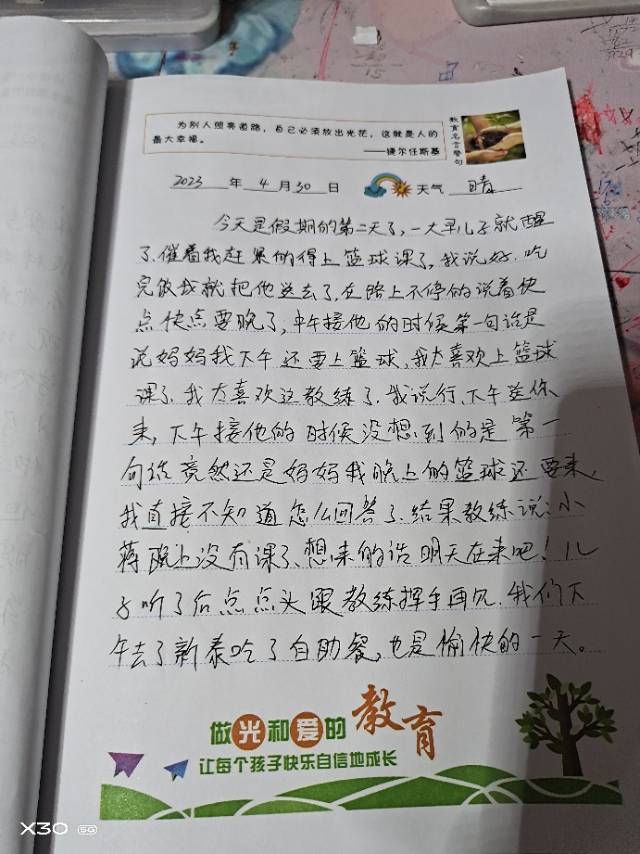 为别人照亮道路，自己必须放出光芒，这就是人的
最大幸福。
——捷尔任斯基
教育名言警句
2023 年 4 月 30 日 天气 晴
今天是假期的第二天了，一大早儿子就醒
了.催着我赶紧的得上篮球课了，我说好.吃
完饭我就把他送去了,在路上不停的说着快
点快点要晚了，中午接他的时候第一句话是
说妈妈我下午还要上篮球,我太喜欢上篮球
课了.我太喜欢这教练了.我说行.下午送你
来，下午接他的时候没想到的是第一
句话竟然还是妈妈我晚上的篮球还要来,
我直接不知道怎么回答了.结果教练说:小
蒋晚上没有课了、想来的话明天在来吧！儿
子听了后点点头跟教练挥手再见.我们下
午去了新泰吃了自助餐,也是愉快的一天。
做光和爱的教育
让每个孩子快乐自信地成长
X30 5G